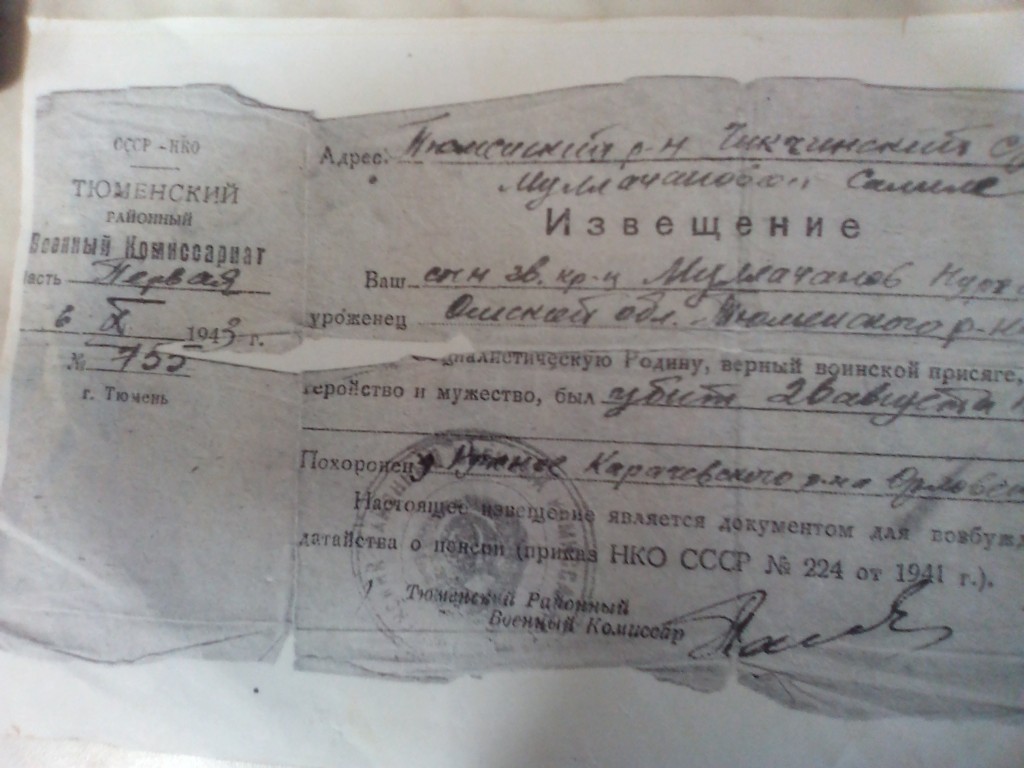 СССР - НКО
ТЮМЕНСКИЙ
РАЙОННЫЙ
Военный Комиссариат
Часть Первая
6 X 1943 г.
№ 755
г. Тюмень
Адрес: Тюменский р-н Чикчинский
Муллачановой Салиме
Извещение
Ваш сын зв. кр-ц Муллачанов
уроженец Омской обл. Тюменского р-на
социалистическую Родину, верный воинской присяге,
геройство и мужество, был убит 20 августа
Похоронен Карачевского р-на
Настоящее извещение является документом для возбужд
датайства о пенсии (приказ НКО СССР № 224 от 1941 г.).
Тюменский Районный
Военный Комиссар